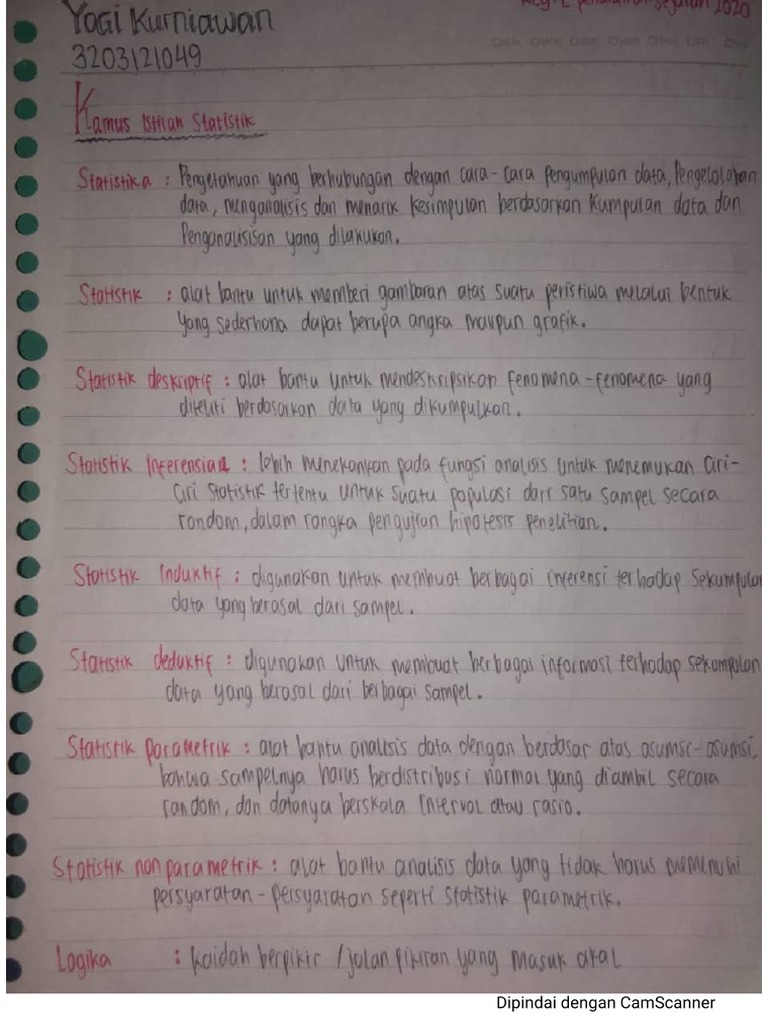 YOGI KURNIAWAN
3203121049
sejarah 2020
Kamus Istilah Statistik
Statistika : Pengetahuan yang berhubungan dengan cara-cara pengumpulan data, Pengelolahan
data, menganalisis dan menarik kesimpulan berdasarkan kumpulan data dan
Penganalisisan yang dilakukan.
Statistik : alat bantu untuk memberi gambaran atas suatu peristiwa melalui bentuk
yang sederhana dapat berupa angka maupun grafik.
Statistik deskriptif : alat bantu untuk mendeskripsikan fenomena-fenomena yang
diteliti berdasarkan data yang dikumpulkan.
Statistik Inferensial : lebih menekankan pada fungsi analisis untuk menemukan ciri-
ciri statistik tertentu untuk suatu populasi dari satu sampel secara
random, dalam rangka pengujian hipotesis penelitian.
Statistik Induktif : digunakan untuk membuat berbagai inferensi terhadap sekumpulan
data yang berasal dari sampel.
Statistik deduktif : digunakan untuk membuat berbagai informasi terhadap sekompulan
data yang berasal dari berbagai sampel.
Statistik parametrik : alat bantu analisis data dengan berdasar atas asumsi-asumsi,
bahwa sampelnya harus berdistribusi normal yang diambil secara
random, dan datanya berskala interval atau rasio.
Statistik non parametrik : alat bantu analisis data yang tidak harus memenuhi
persyaratan-persyaratan seperti statistik parametrik.
Logika : kaidah berpikir / jalan pikiran yang masuk akal
Dipindai dengan CamScanner